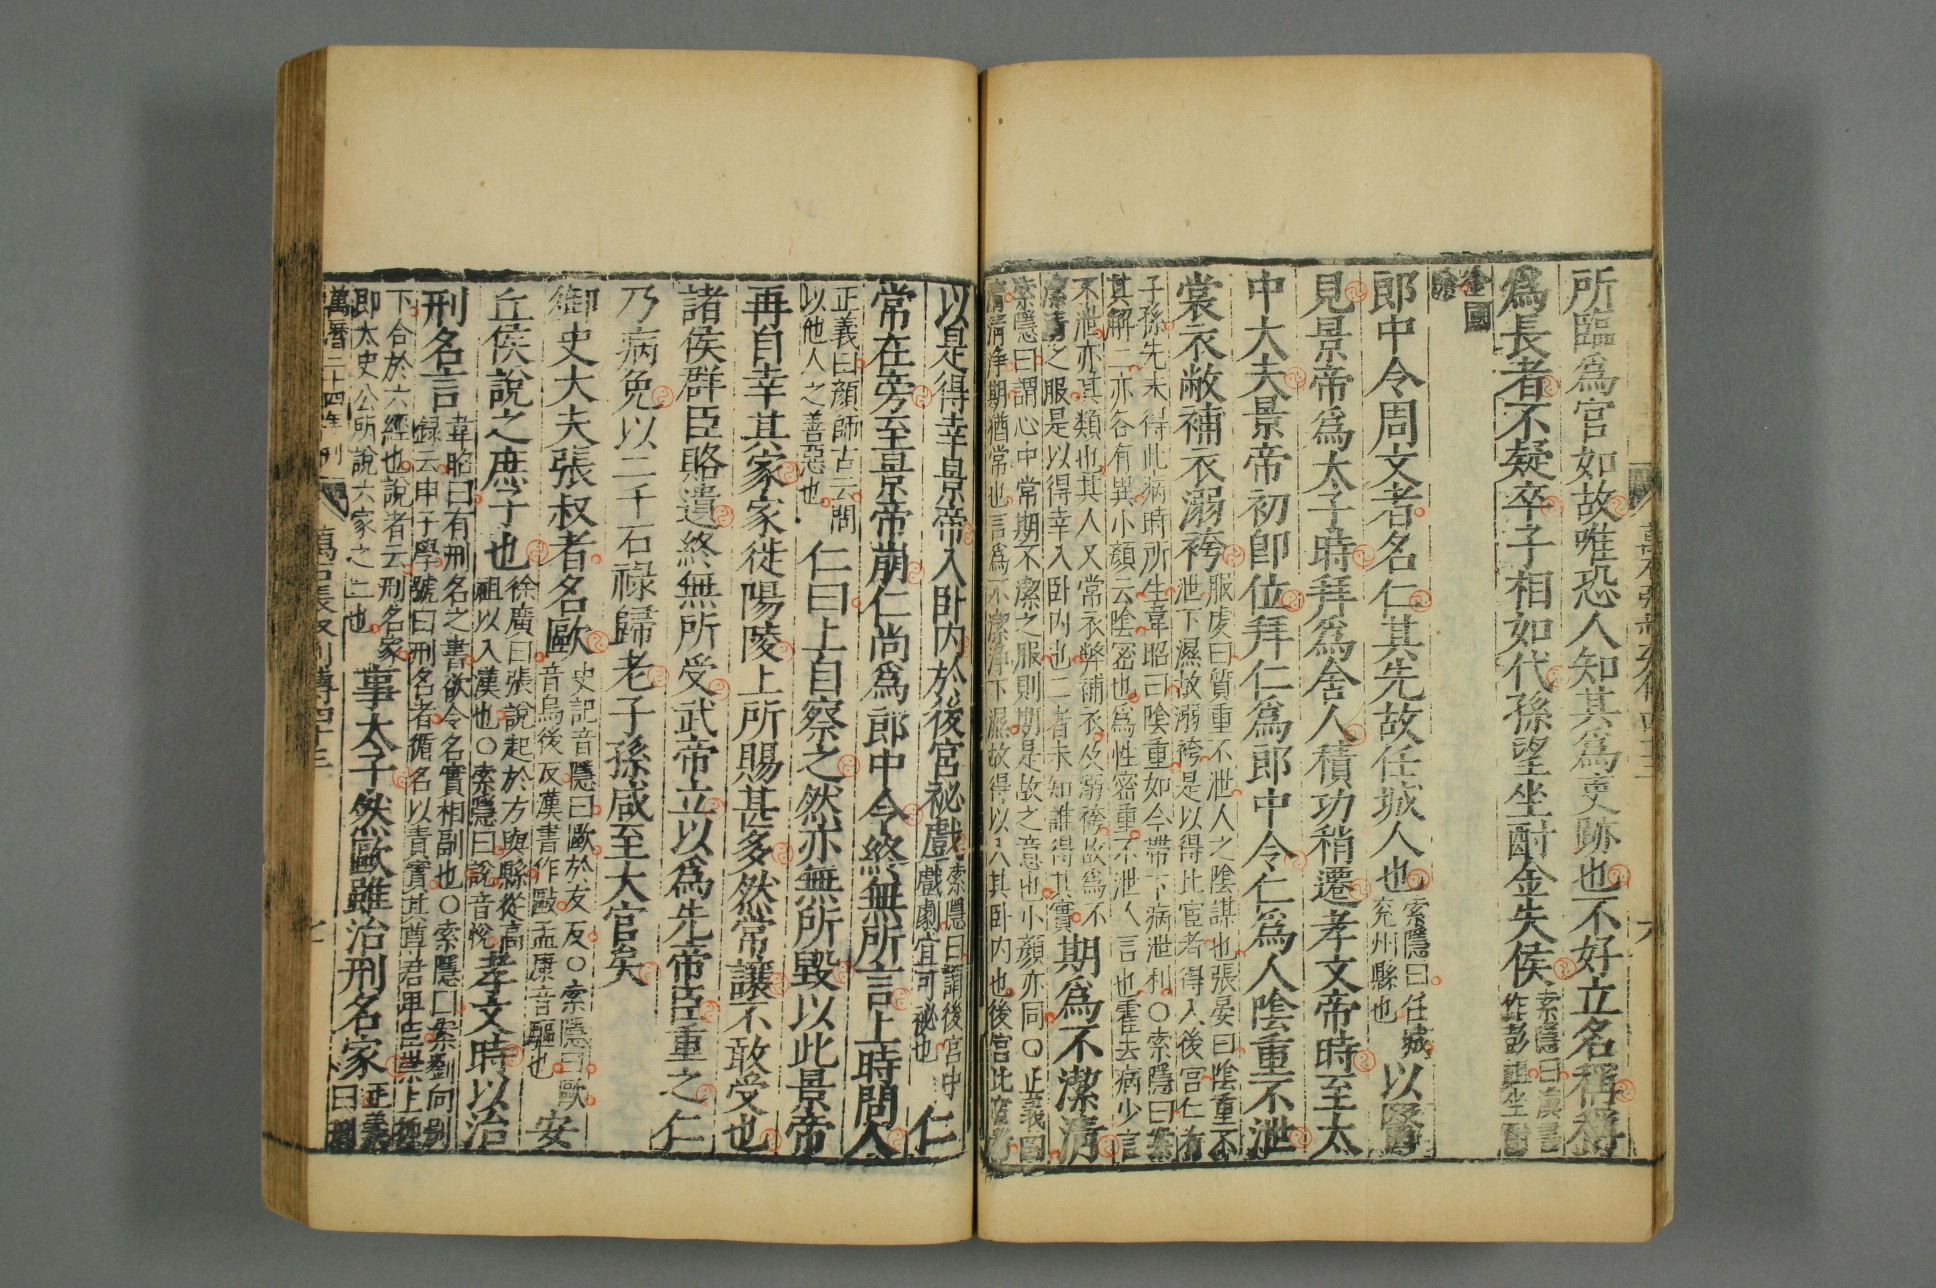 所臨爲官如故唯恐人知其爲吏跡也不好立名稱稱
爲長者不疑卒子相如代孫望坐酎金失侯索隱曰漢書
作彭祖坐酎
金國
除
郎中令周文者名仁其先故任城人也索隱曰任城
兖州縣也
以醫
見景帝爲太子時拜爲舍人積功稍遷孝文帝時至太
中大夫景帝初即位拜仁爲郎中令仁爲人陰重不泄
服虔曰質重不泄人之陰謀也張晏曰陰重不
泄下濕故溺袴是以得比宦者得入後宮仁有
裳衣敝補衣溺袴
子孫先未得此病時所生韋昭曰陰重如今帶下病泄利〇索隱曰案
其解二亦各有異小顏云陰密也爲性密重不泄人言也霍去病少言
不泄亦其類也其人又常衣弊補衣及溺袴故爲不
潔清之服是以得幸入卧内也二者未知誰得其實
期爲不潔清
索隱曰謂心中常期不潔之服則期是故之意也小顏亦同〇正義曰
清清淨期猶常也言爲不潔淨下濕故得以入其卧内也後宮比宦者
以是得幸景帝入卧内於後宮祕戲索隱曰謂後宮中
戲劇宜可祕也
仁
常在旁至景帝崩仁尚爲郎中令終無所言上時問人
正義曰顏師古云問
以他人之善惡也
仁曰上自察之然亦無所毀以此景帝
再自幸其家家徙陽陵上所賜甚多然常讓不敢受也
諸侯群臣賂遺終無所受武帝立以爲先帝臣重之仁
乃病免以二千石祿歸老子孫咸至大官矣
御史大夫張叔者名歐史記音隱曰歐於友反〇索隱曰歐
音烏後反漢書作敺孟康音驅也
安
丘侯說之庶子也徐廣曰張說起於方與縣從高
祖以入漢也〇索隱曰說音悅
孝文時以治
刑名言韋昭曰有刑名之書欲令名實相副也〇索隱曰案劉向別
録云申子學號曰刑名者循名以責實其尊君卑臣崇上抑
下合於六經也說者云刑名家
即太史公所說六家之二也
事太子然歐雖治刑名家正義
曰劉
萬曆二十四年刊
萬石張叔列傳四十三